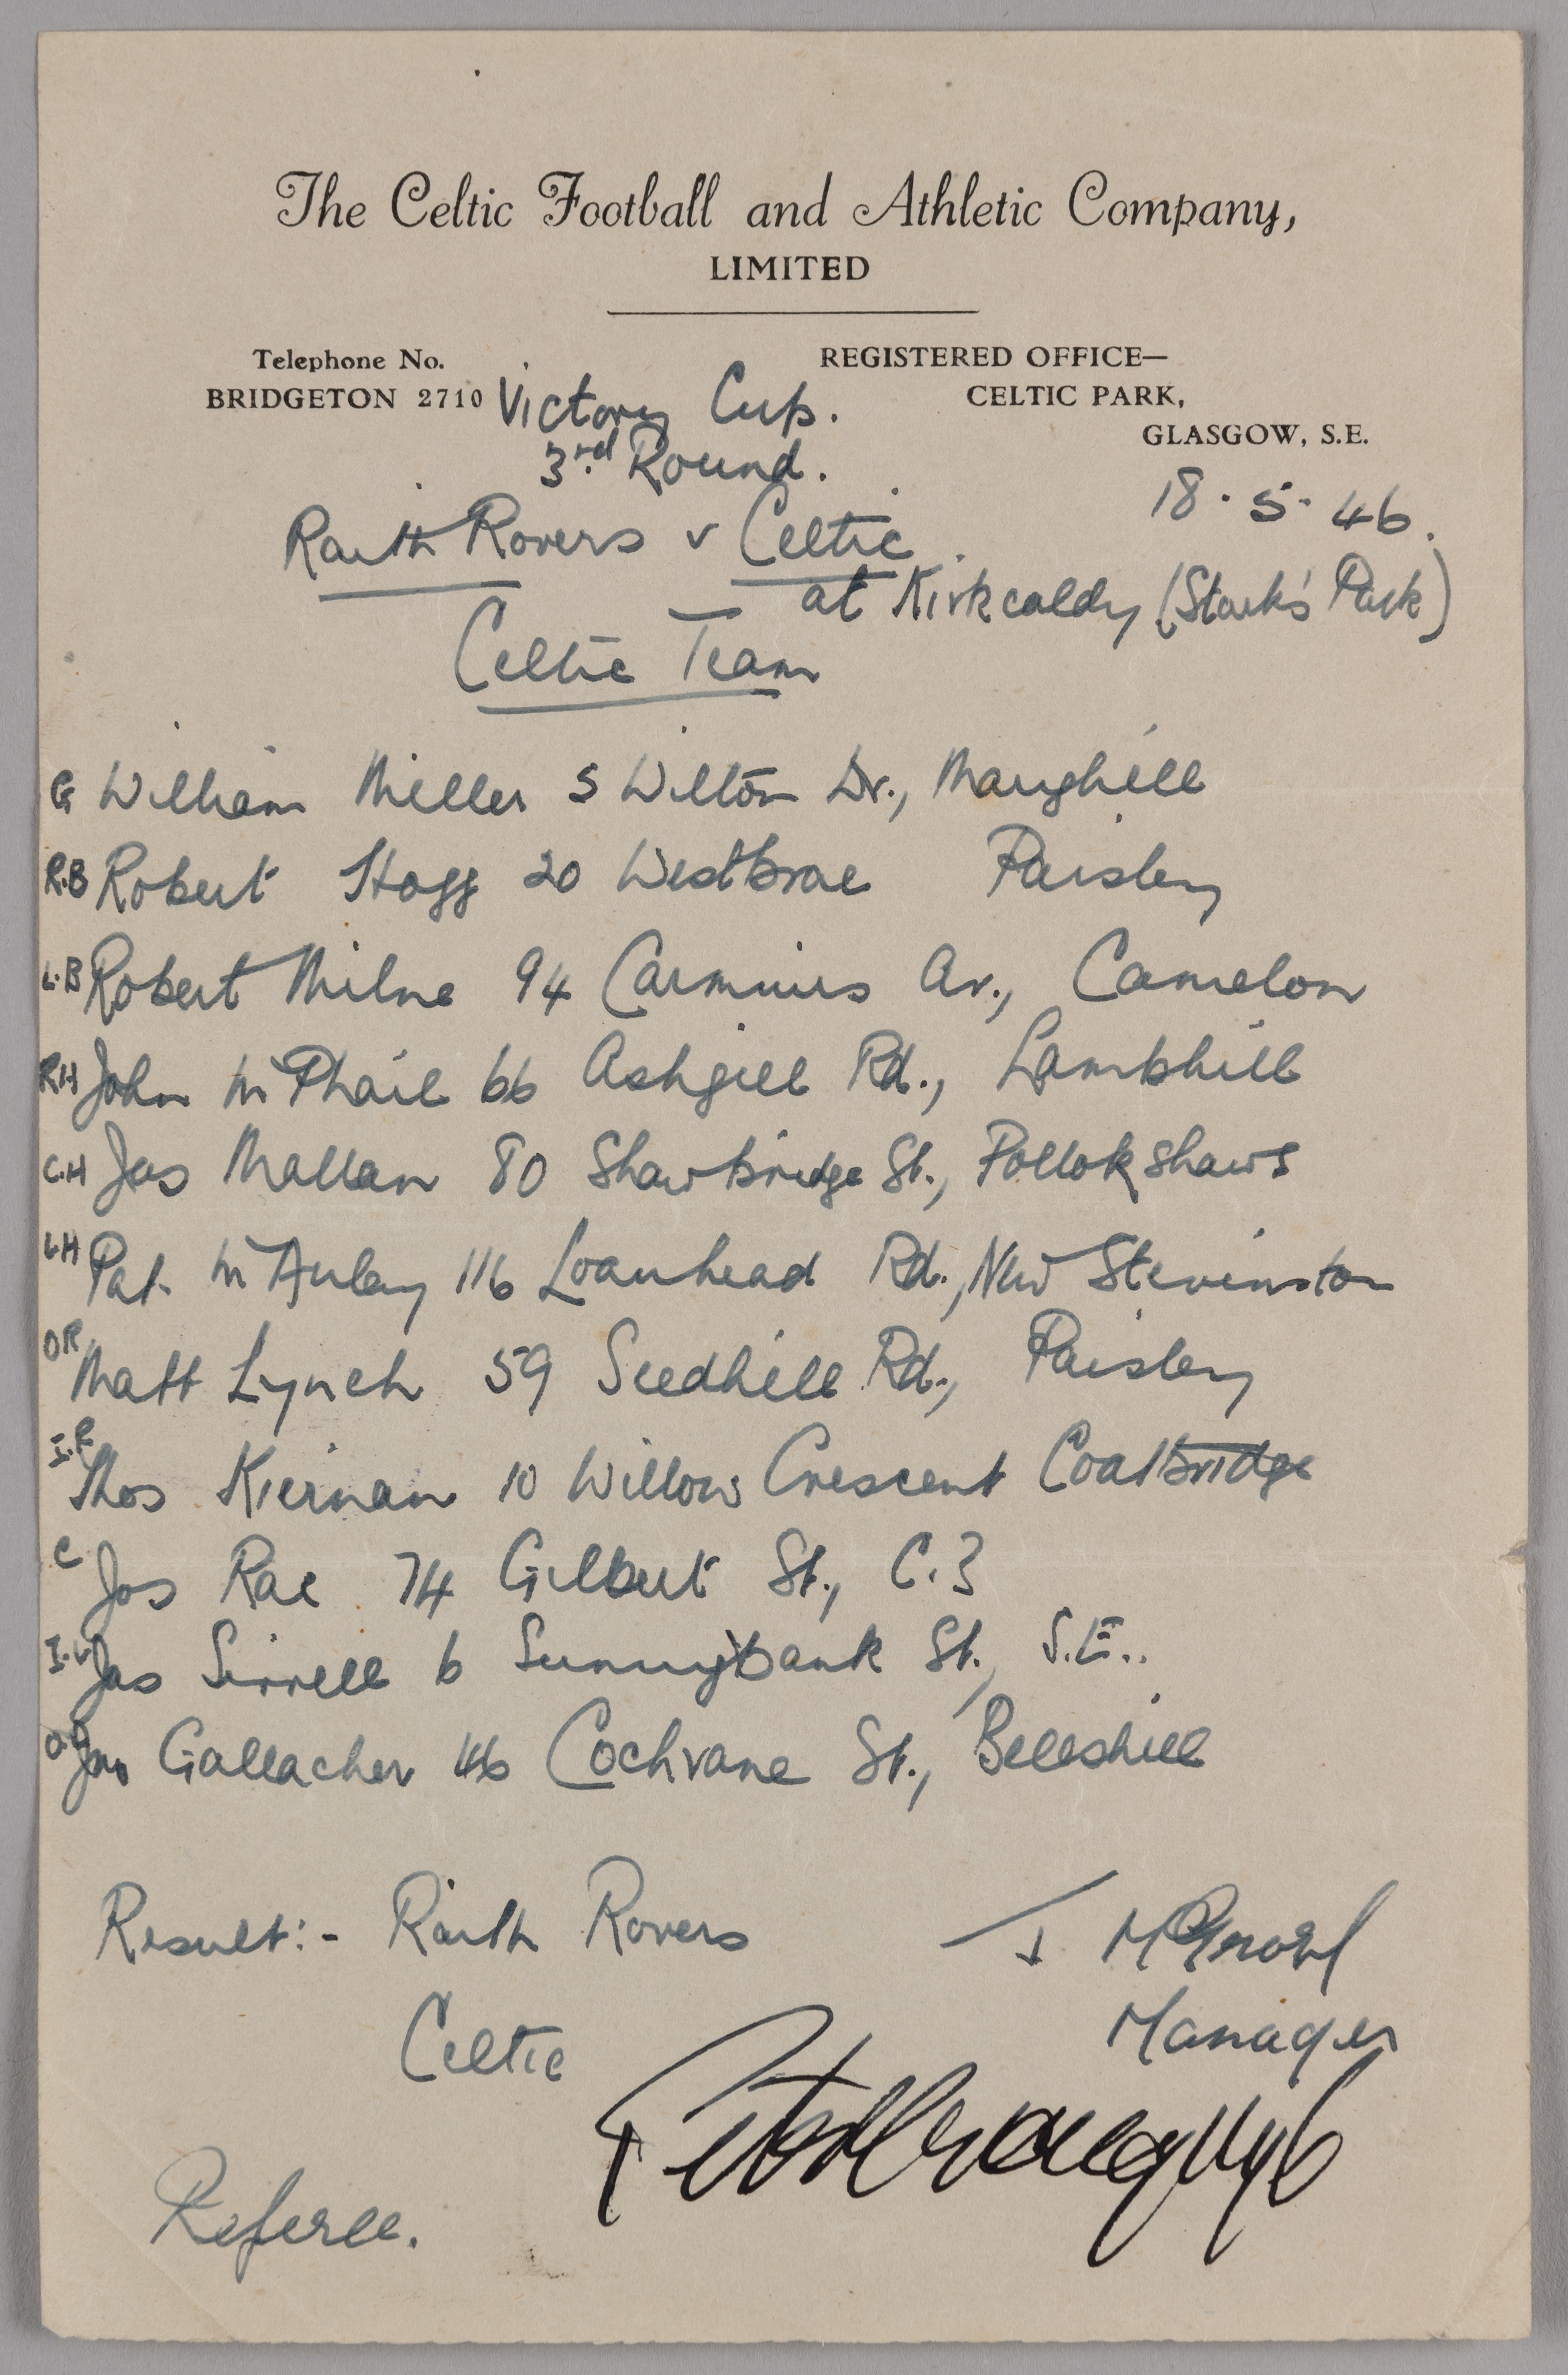 The Celtic Football and Athletic Company,
LIMITED
Telephone No.
BRIDGETON 2710
REGISTERED OFFICE—
CELTIC PARK,
GLASGOW, S.E.
Victory Cup.
3rd Round.
18.5.46.
Raith Rovers v Celtic.
at Kirkcaldy (Stark's Park)
Celtic Team
G William Miller 5 Wilton Dr., Maryhill
R.B Robert Hogg 20 Westbrae Paisley
L.B Robert Milne 94 Carmuirs Av., Camelon
R.H John McPhail 66 Ashgill Rd., Lambhill
C.H Jas Mallan 80 Shawbridge St., Pollokshaws
L.H Pat. McAulay 116 Loanhead Rd., New Stevinston
O.R Matt Lynch 59 Seedhill Rd., Paisley
I.R Thos Kiernan 10 Willow Crescent Coatbridge
C Jas Rae 74 Gilbert St., C.3
I.L Jas Sirrell 6 Sunnybank St., S.E..
Gallacher 46 Cochrane St., Bellshill
Result:- Raith Rovers
J McGrory
Manager
Celtic
Referee.